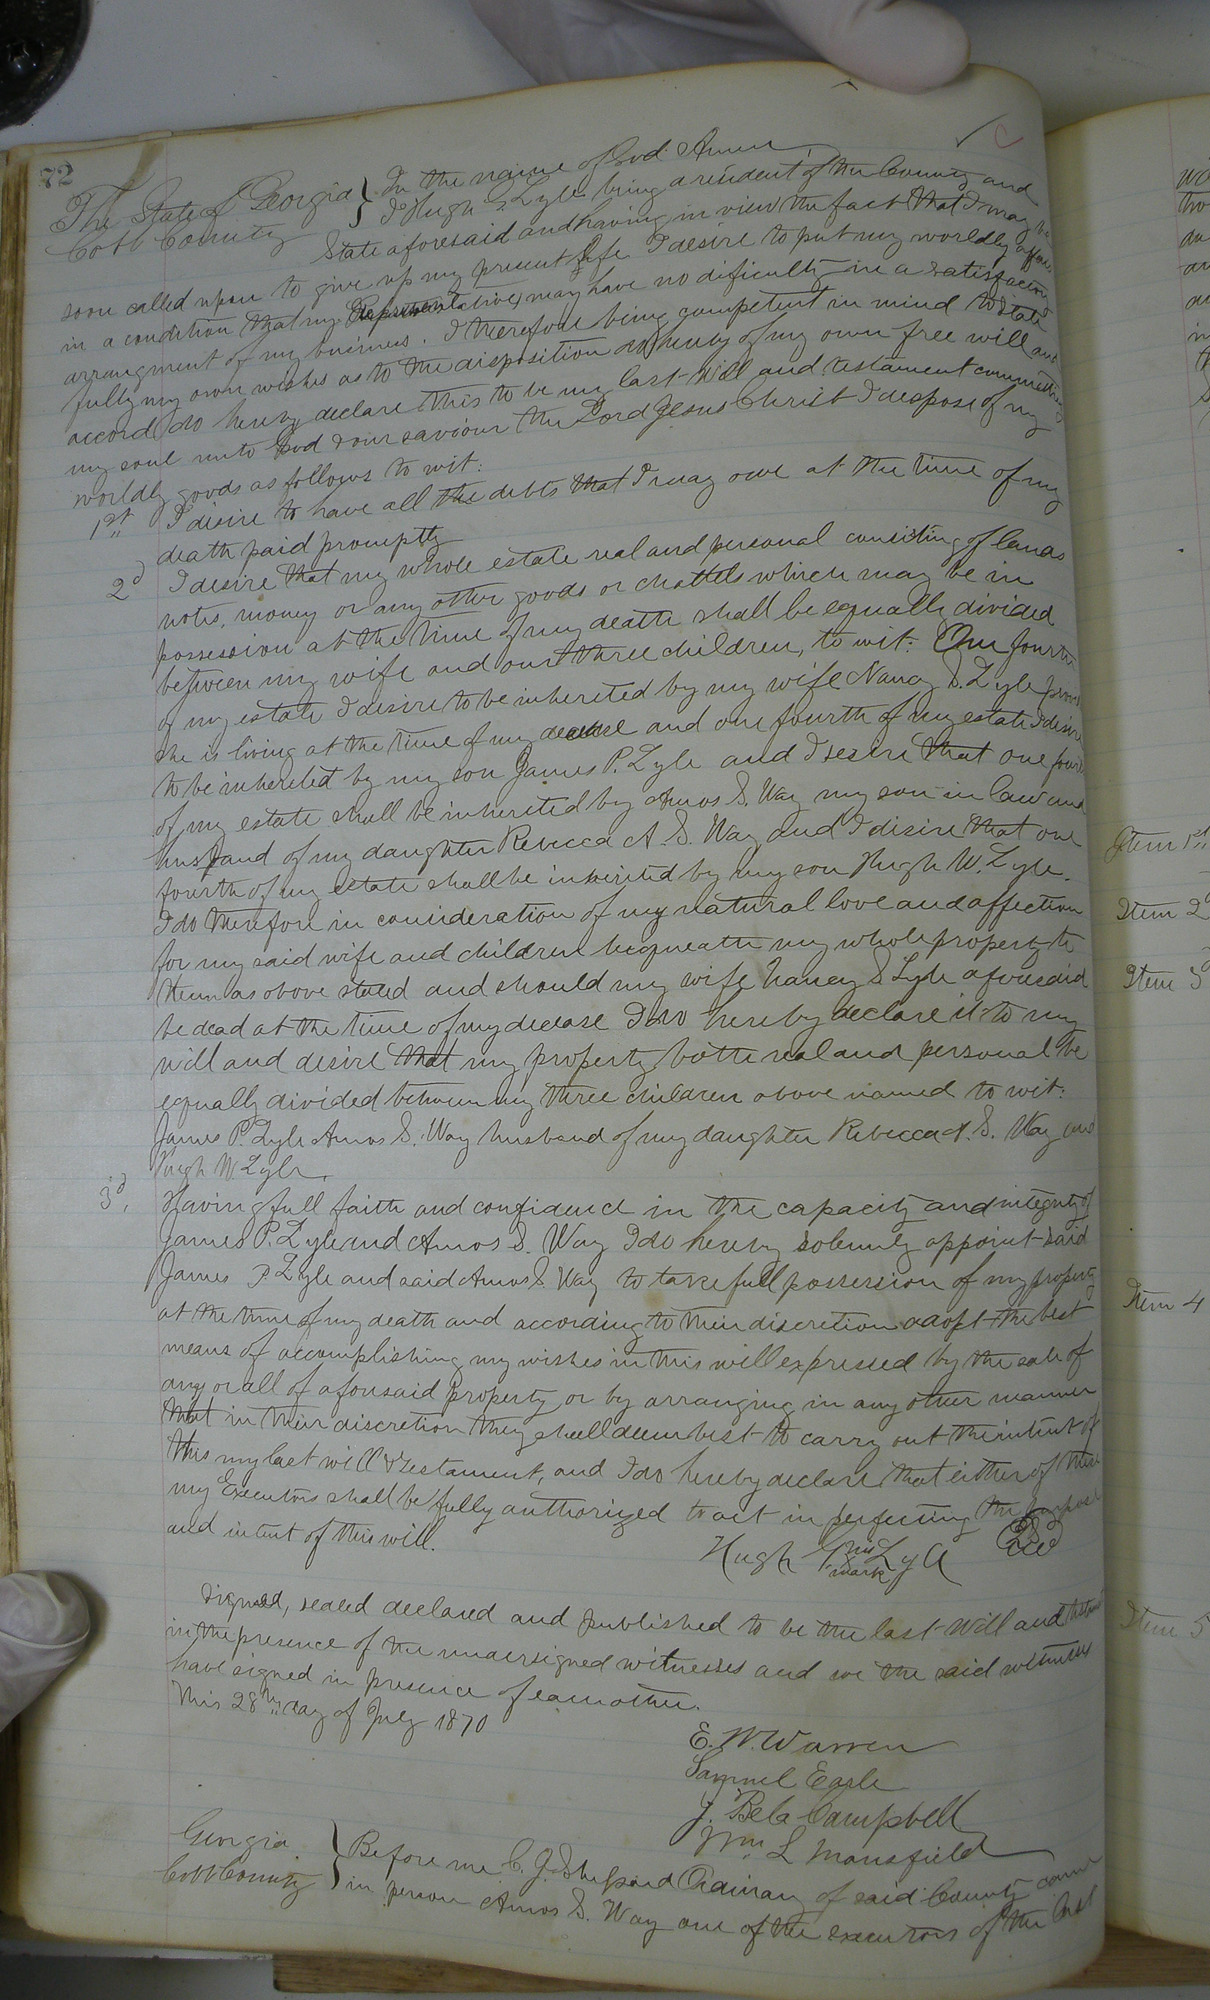 72
The State of Georgia } In the name of God Amen
Cobb County } I Hugh G. Lyle being a resident of the County and
State aforesaid and having in view the fact that I may be
soon called upon to give up my present life I desire to put my worldly affairs
in a condition that my Representatives may have no dificulty in a satisfactory
arrangment of my business. I therefore being competent in mind to state
fully my own wishes as to the disposition of my own free will and
accord do hereby declare this to be my last Will and testament committing
my soul unto God & our saviour the Lord Jesus Christ I dispose of my
worldly goods as follows to wit:
1st I desire to have all the debts that I may owe at the time of my
death paid promptly
2d I desire that my whole estate real and personal consisting of lands
notes, money or any other goods or chattels which may be in
possession at the time of my death shall be equally divided
between my wife and our three children, to wit: One fourth
of my estate I desire to be inherited by my wife Nancy S. Lyle
she is living at the time of my decease and one fourth of my estate I desire
to be inherited by my son James P. Lyle and I desire that one fourth
of my estate shall be inherited by Amos S. Way my son in law and
husband of my daughter Rebecca A. S. Way and I disire that one
fourth of my estate shall be inherited by my son Hugh W. Lyle.
I do therefore in consideration of my natural love and affection
for my said wife and children bequeath my whole property to
them as above stated and should my wife Nancy S Lyle aforesaid
be dead at the time of my decease I do hereby declare it to my
will and desire that my property both real and personal be
equally divided between my three children above named to wit:
James P. Lyle Amos S. Way husband of my daughter Rebecca A. S. Way and
Hugh W Lyle.
3d, Having full faith and confidence in the capacity and integrity of
James P. Lyle and Amos S. Way I do hereby solemnly appoint said
James P Lyle and said Amos S Way to take full possession of my property
at the time of my death and according to their discretion adopt the best
means of accomplishing my wishes in this will expressed by the sale of
any or all of aforesaid property or by arranging in any other manner
that in their discretion they shall deem best to carry out the intent of
this my last will & testament, and I do hereby declare that either of these
my Executors shall be fully authorized to act in perfecting the purpose
and intent of this will.
Hugh G his mark Lyle
Signed, sealed declared and published to be the last Will and
in the presence of the undersigned witnesses and we the said witnesses
have signed in presence of each other.
This 28th day of July 1870
E. W. Warren
Samuel Earle
J. Bela Campbell
Wm L Mansfield
Georgia } Before me C. J. Shepard Ordinary of said County came
Cobb County } in person Amos S. Way one of the executors of the last
Item 1st
Item 2d
Item 3d
Item 4
Item 5